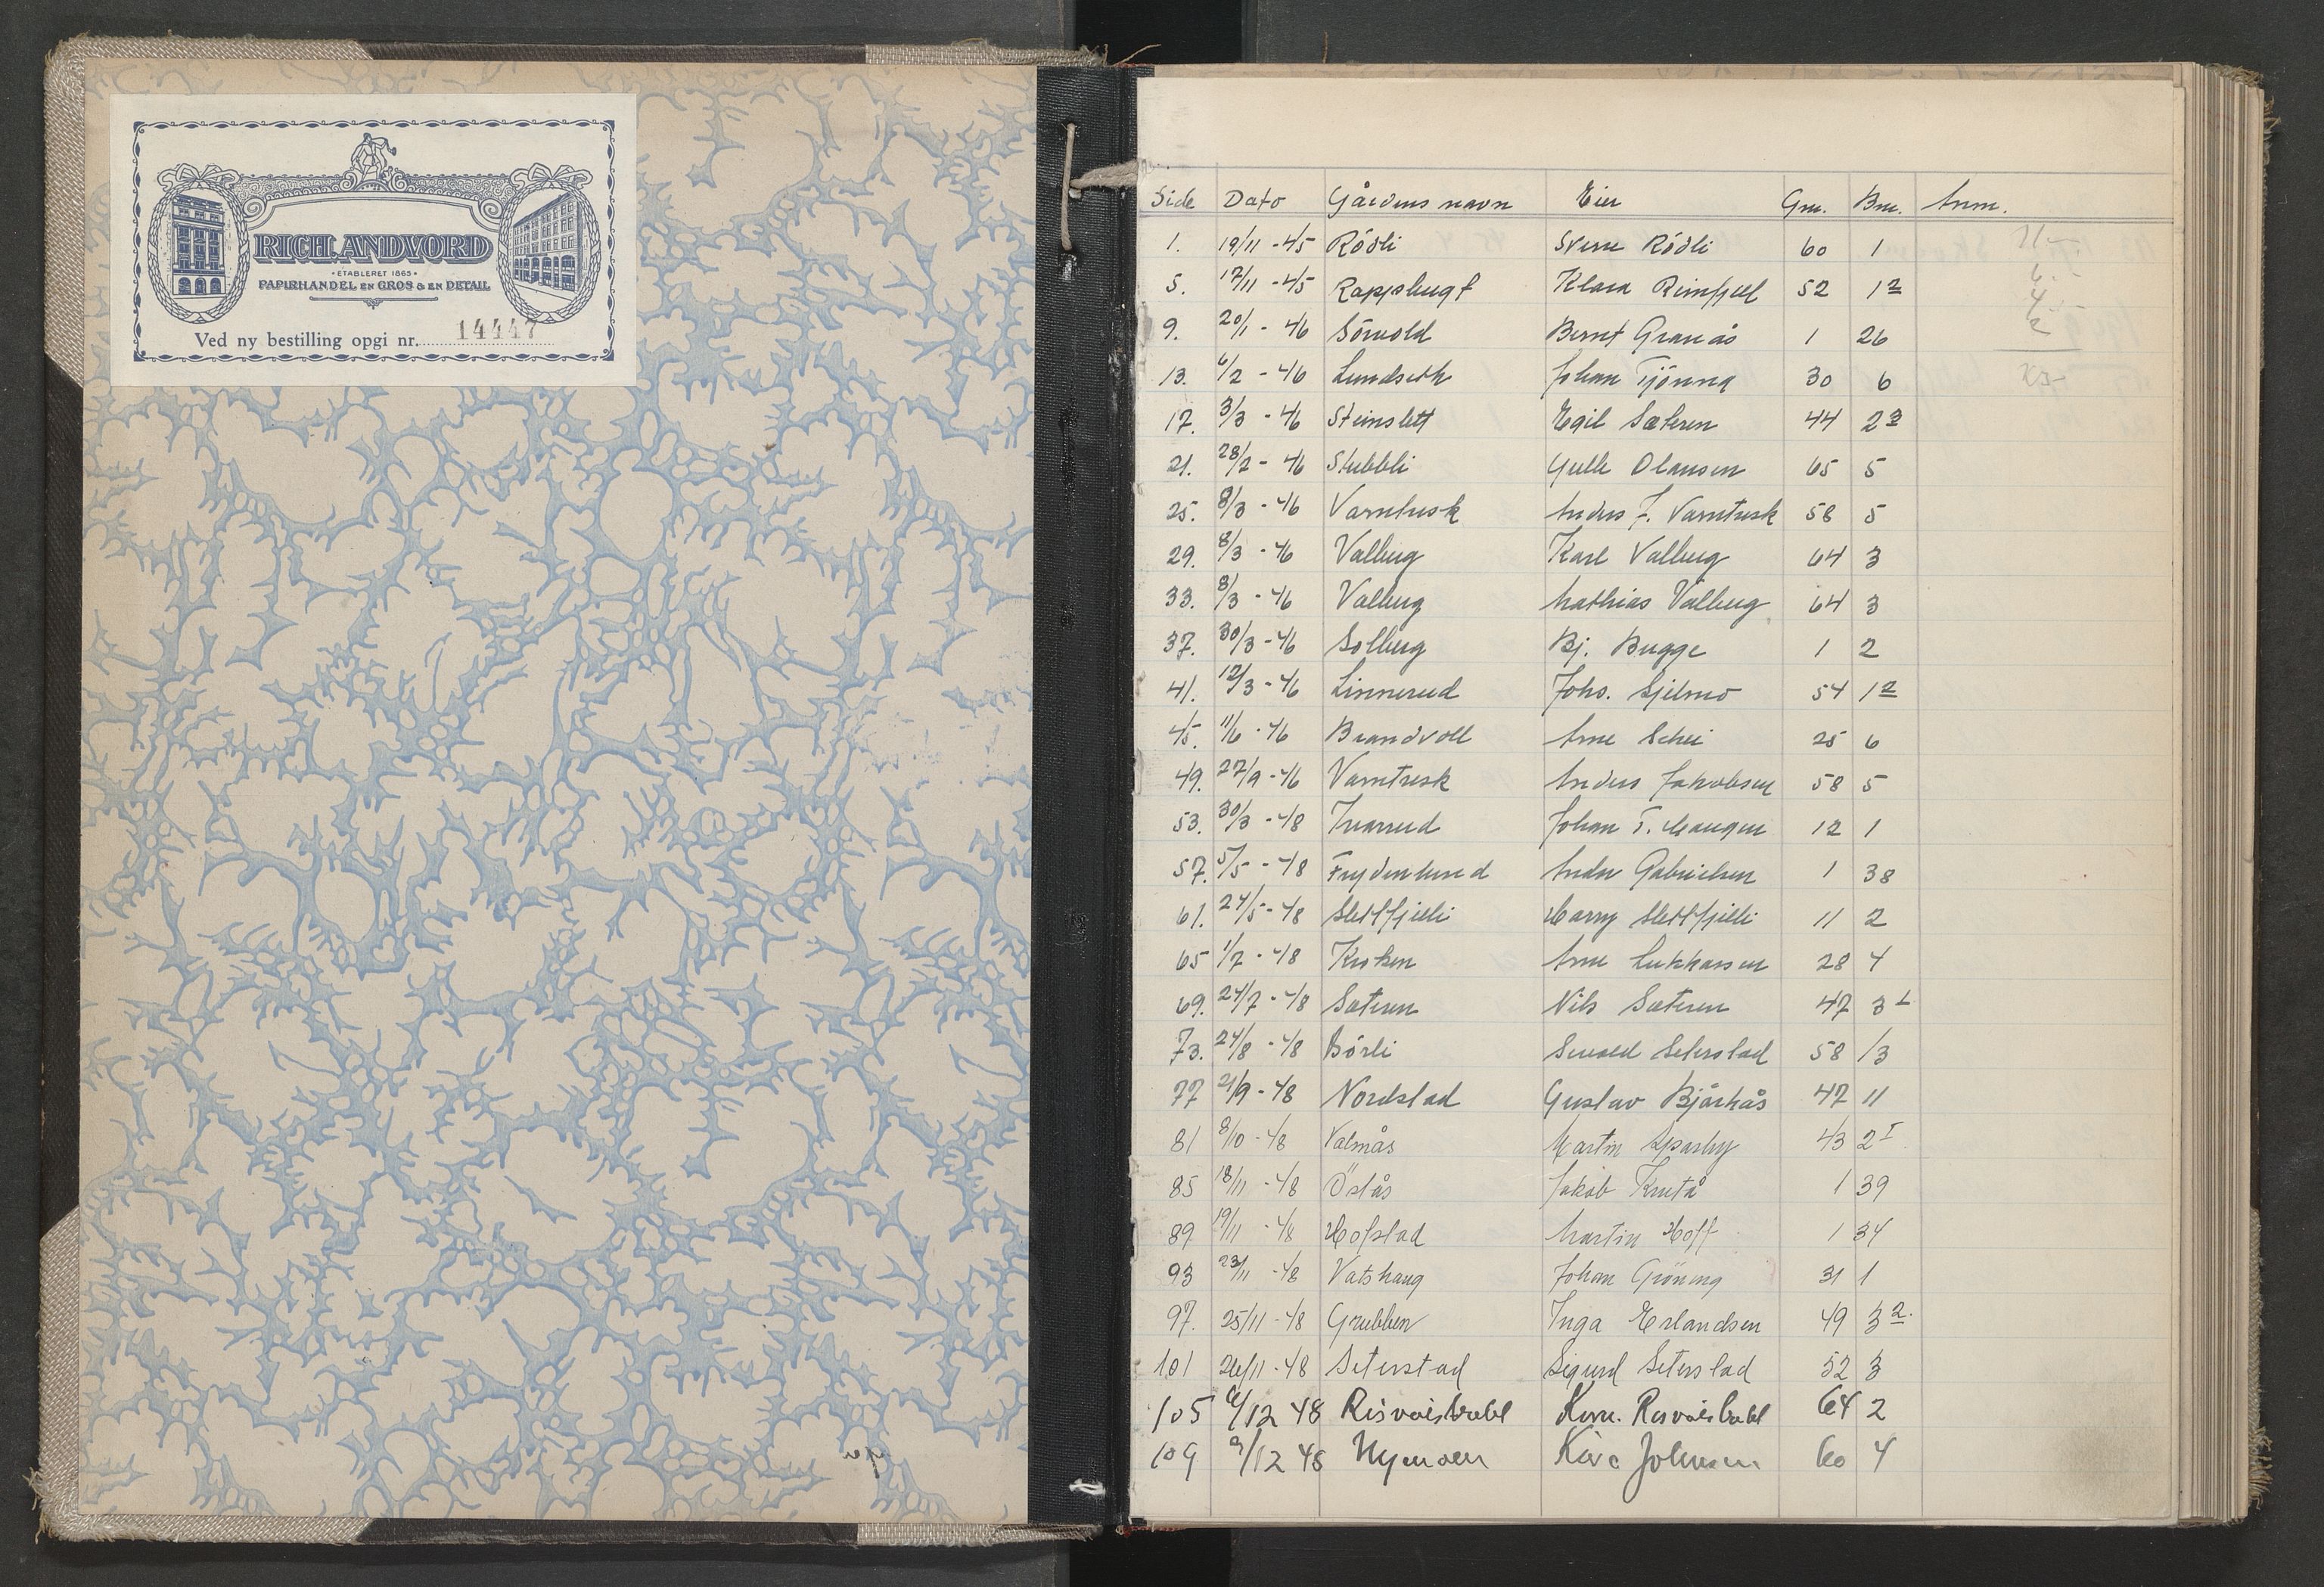 RICH. ANDVORD
• ETABLERET 1865 •
PAPIRHANDEL EN GROS & EN DETAIL
Ved ny bestilling opgi nr. 14447
Side Dato Gårdens navn Eier Gnr. Bnr. Anm.
1. 19/11 -45 Rödli Sverre Rödli 60 1
5. 17/11 -45 Klara Rimfjell 52 1 2
9. 20/1 - 46 Sörvold Bernt Granås 1 26
13. 6/2 - 46 Lundseth Johan Tjönna 30 6
17. 3/3 - 46 Steinslett Egil Sæteren 44 2 3
21. 28/2 - 46 Stubbli Olausen 65 5
25. 8/3 - 46 Varntresk Anders J. Varntresk 58 5
29. 8/3 - 46 Valberg Karl Valberg 64 3
33. 8/3 - 46 Valberg Mathias Valberg 64 3
37. 30/3 - 46 Solberg Bj. Bugge 1 2
41. 12/3 - 46 Linnerud Johs. Sjilmo 54 1 2
45. 11/6 - 46 Brandvoll Arne Schei 25 6
49. 27/9 - 46 Varntresk Anders Jakobsen 58 5
53. 30/3 - 48 Ivarrud Johan T. Haugen 12 1
57. 5/5 - 48 Frydenlund Andor Gabrielsen 1 38
61. 24/5 - 48 Slettfjelli Harry Slettfjelli 11 2
65 1/7 - 48 Kroken Arne Lukkassen 28 4
69. 24/7 - 48 Sæteren Nils Sæteren 47 3
73. 24/8 - 48 Börli Sevald Seterstad 58 13
77 21/9 - 48 Nordstad Gustav Bjåkås 47 11
81 8/10 - 48 Valmås Martin Sparby 43 2 I
85 18/11 - 48 Östås Jakob Krutå 1 39
89 19/11 - 48 Hofstad Martin Hoff 1 34
93 23/11 - 48 Vatshaug Johan Gröning 31 1
97. 25/11 - 48 Grubben Inga Erlandsen 49 3 2.
101 26/11 - 48 Seterstad Sigurd Seterstad 52 3
105 /12 48 64 2
109 9/12 48 Nymoen Johnsen 60 4